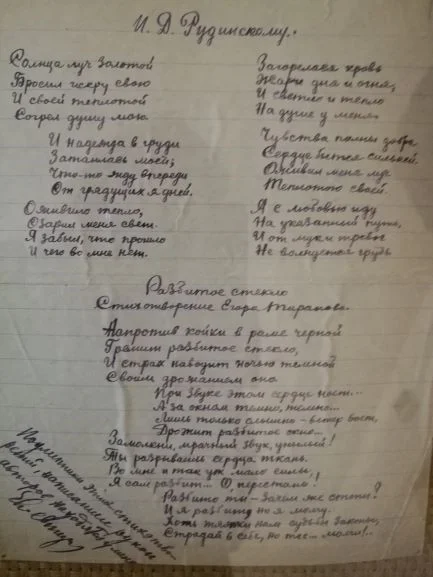 И. Д. Рудинскому.
Солнца луч золотой
Бросил искру свою
И своей теплотой
Согрел душу мою.
И надежда в груди
Затаилась моей;
Что-то жду впереди
От грядущих я дней.
Оживило тепло,
Озарил меня свет.
Я забыл, что прошло
И чего во мне нет.
Загорелась кровь
Жарче дня и огня,
И светло и тепло
На душе у меня.
Чувства полны добра
Сердце бьется сильней.
Оживил меня луч
Теплотою своей.
Я с любовью иду
На указанный путь,
И от мук и тревог
Не волнуется грудь
Разбитое стекло
Стихотворение Егора Тарапова.
Напротив койки в раме черной
Гремит разбитое стекло,
И страх наводит ночью темной
Своим дрожанием оно
При звуке этом сердце ноет...
А за окном темно, темно...
Лишь только слышно - ветер воет,
Дрожит разбитое окно...
Замолкни, мрачный звук, унылый!
Ты разрываешь сердца ткань.
Во мне и так уж мало силы,
Я сам разбит... О, перестань!
Разбито ты - зачем же
И я разбит, но я молчу.
Хоть тяжки нам судьбы законы,
Страдай в себе, но тсс... молчи!..
Подлинники этих стихотво-
рений, написанные рукой
авторов,